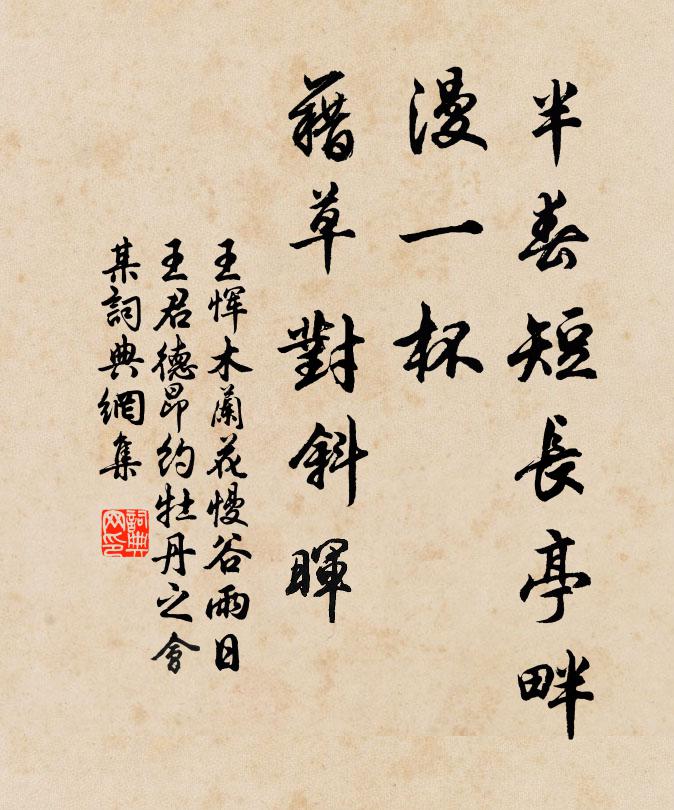 半春短長亭畔
漫一杯
藉草對斜暉
王惲木蘭花慢谷雨日
王君德昂約牡丹之會
某詞典網集
詞典
网印